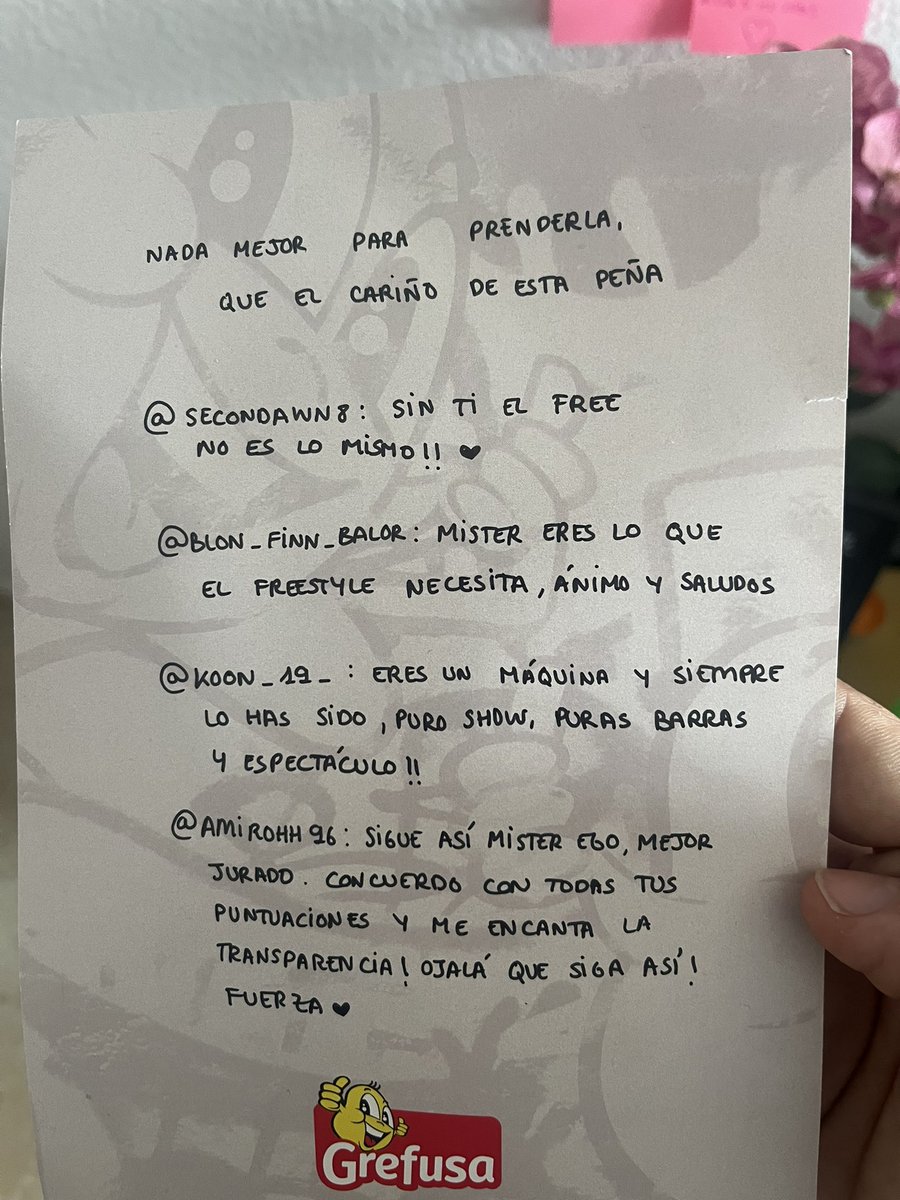 NADA MEJOR PARA PRENDERLA,
QUE EL CARIÑO DE ESTA PEÑA
@SECONDAWN8: SIN TI EL FREE
NO ES LO MISMO!! ♥
@BLON_FINN_BALOR: MISTER ERES LO QUE
EL FREESTYLE NECESITA, ÁNIMO Y SALUDOS
@KOON_19_: ERES UN MÁQUINA Y SIEMPRE
LO HAS SIDO, PURO SHOW, PURAS BARRAS
Y ESPECTÁCULO!!
@AMIROHH96: SIGUE ASÍ MISTER EGO, MEJOR
JURADO. CONCUERDO CON TODAS TUS
PUNTUACIONES Y ME ENCANTA LA
TRANSPARENCIA! OJALÁ QUE SIGA ASÍ!
FUERZA ♥
Grefusa